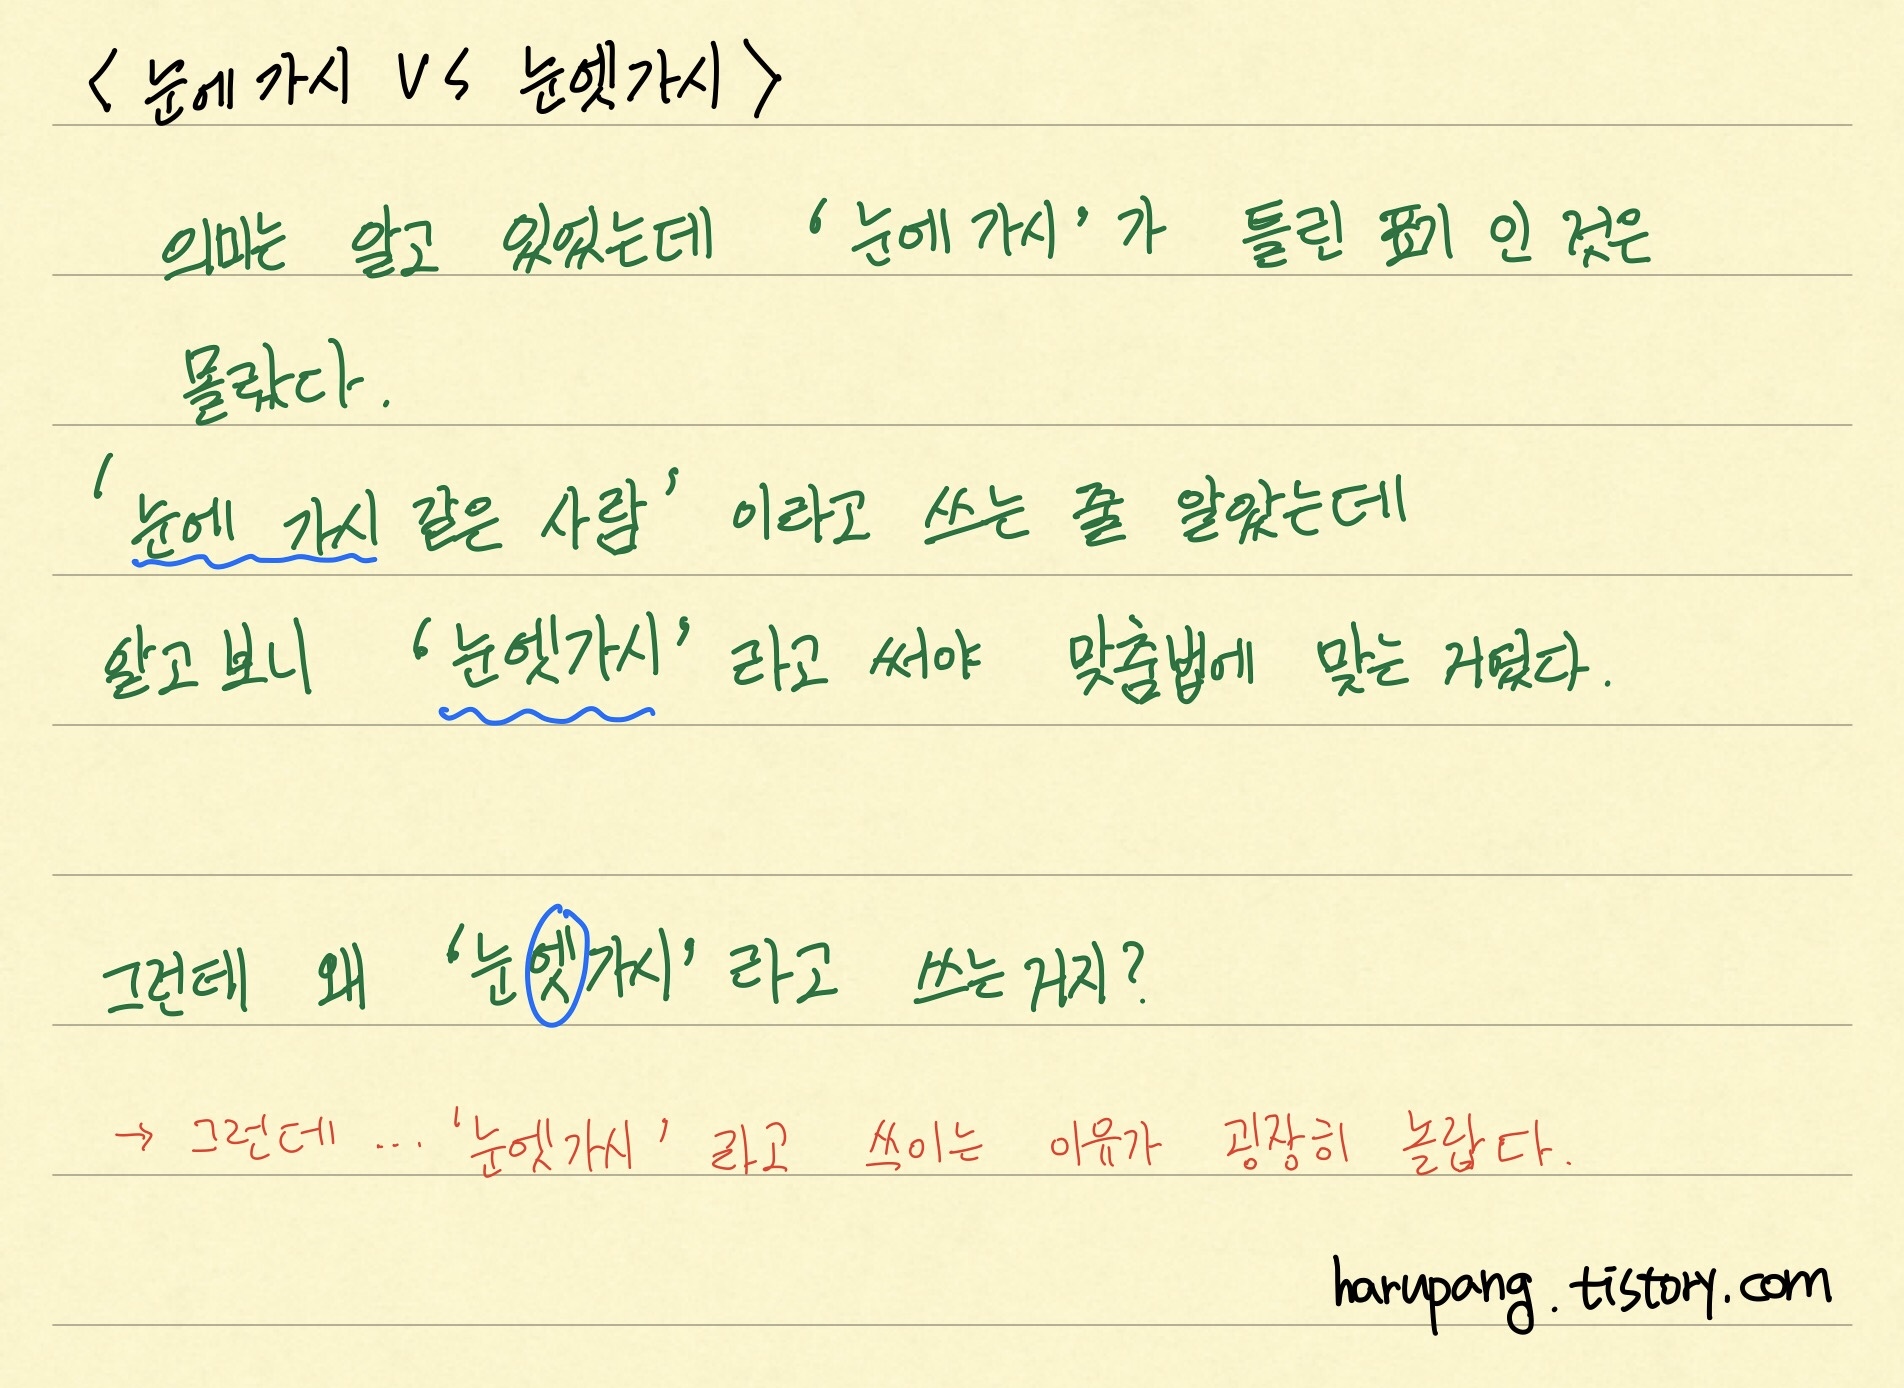 < 눈에 가시 VS 눈엣가시 >
의마는 알고 있었는데 '눈에 가시'가 틀린 표기 인 것은
몰랐다.
'눈에 가시 같은 사람' 이라고 쓰는 줄 알았는데
알고 보니 '눈엣가시' 라고 써야 맞춤법에 맞는 거였다.
그런데 왜 '눈엣가시' 라고 쓰는 거지?
→ 그런데 ... '눈엣가시' 라고 쓰이는 이유가 굉장히 놀랍다.
harupang.tistory.com